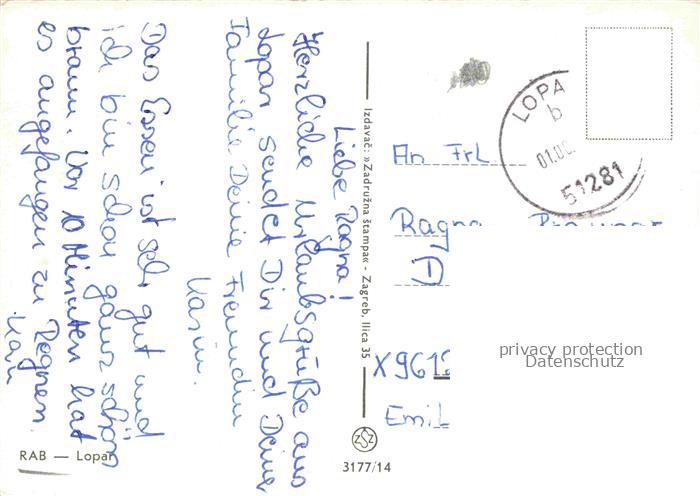 Liebe Ragna!
Herzliche Urlaubsgrüße aus
Lopar sendet Dir und Deine
Familie Deine Freundin
Karin.
Das Essen ist sehr gut und
ich bin schon ganz schön
braun. Vor 10 Minuten hat
es angefangen zu Regnen.
Karin
RAB — Lopar
Izdavač: »Zadružna štampa« - Zagreb, Ilica 35
ZSZ
3177/14
LOPA
b
51281
An Frl.
Ragna
D
X961
Emil
privacy protection
Datenschutz